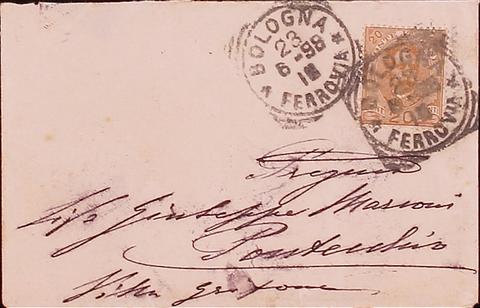 BOLOGNA
23
6-98
FERROVIA
20
BOLOGNA
23
FERROVIA
20
Giuseppe Marconi
Pontecchio
Villa Grifone